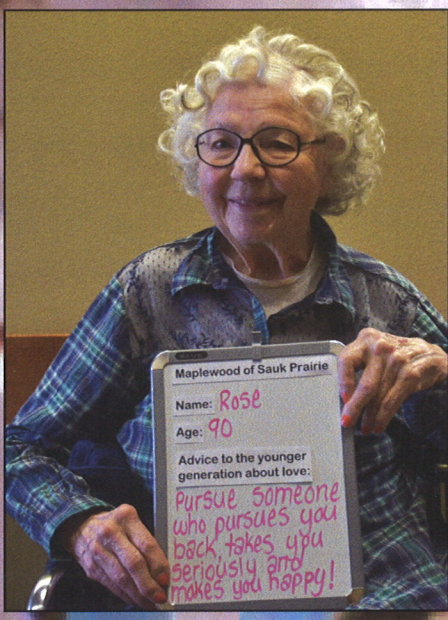 Maplewood of Sauk Prairie
Name: Rose
Age: 90
Advice to the younger
generation about love:
Pursue someone
who pursues you
back, takes you
seriously and
makes you happy!